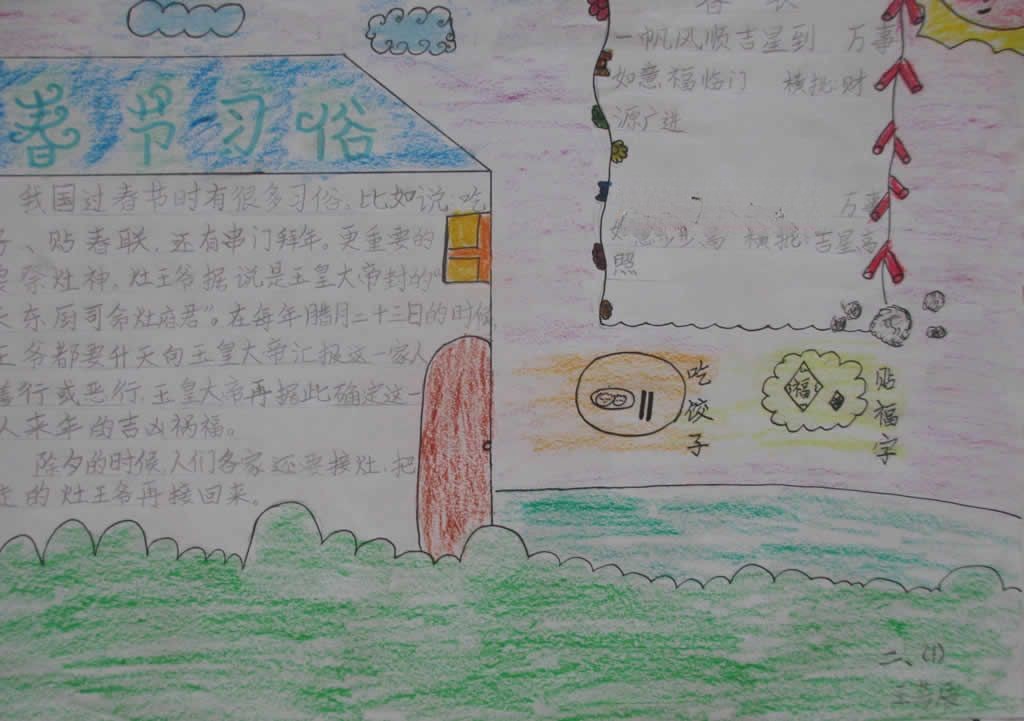 春节习俗
我国过春节时有很多习俗，比如说，吃
子、贴春联，还有串门拜年。更重要的
要祭灶神，灶王爷据说是玉皇大帝封的“
东厨司命灶府君”。在每年腊月二十三日的时候
王爷都要升天向玉皇大帝汇报这一家人
善行或恶行，玉皇大帝再据此确定这一
人来年的吉凶祸福。
除夕的时候，人们各家还要接灶，把
走的灶王爷再接回来。
春联
一帆风顺吉星到 万事
如意福临门 横批：财
源广进
万事
横批：吉星高
照
吃饺子
福
贴福字
二、(1)